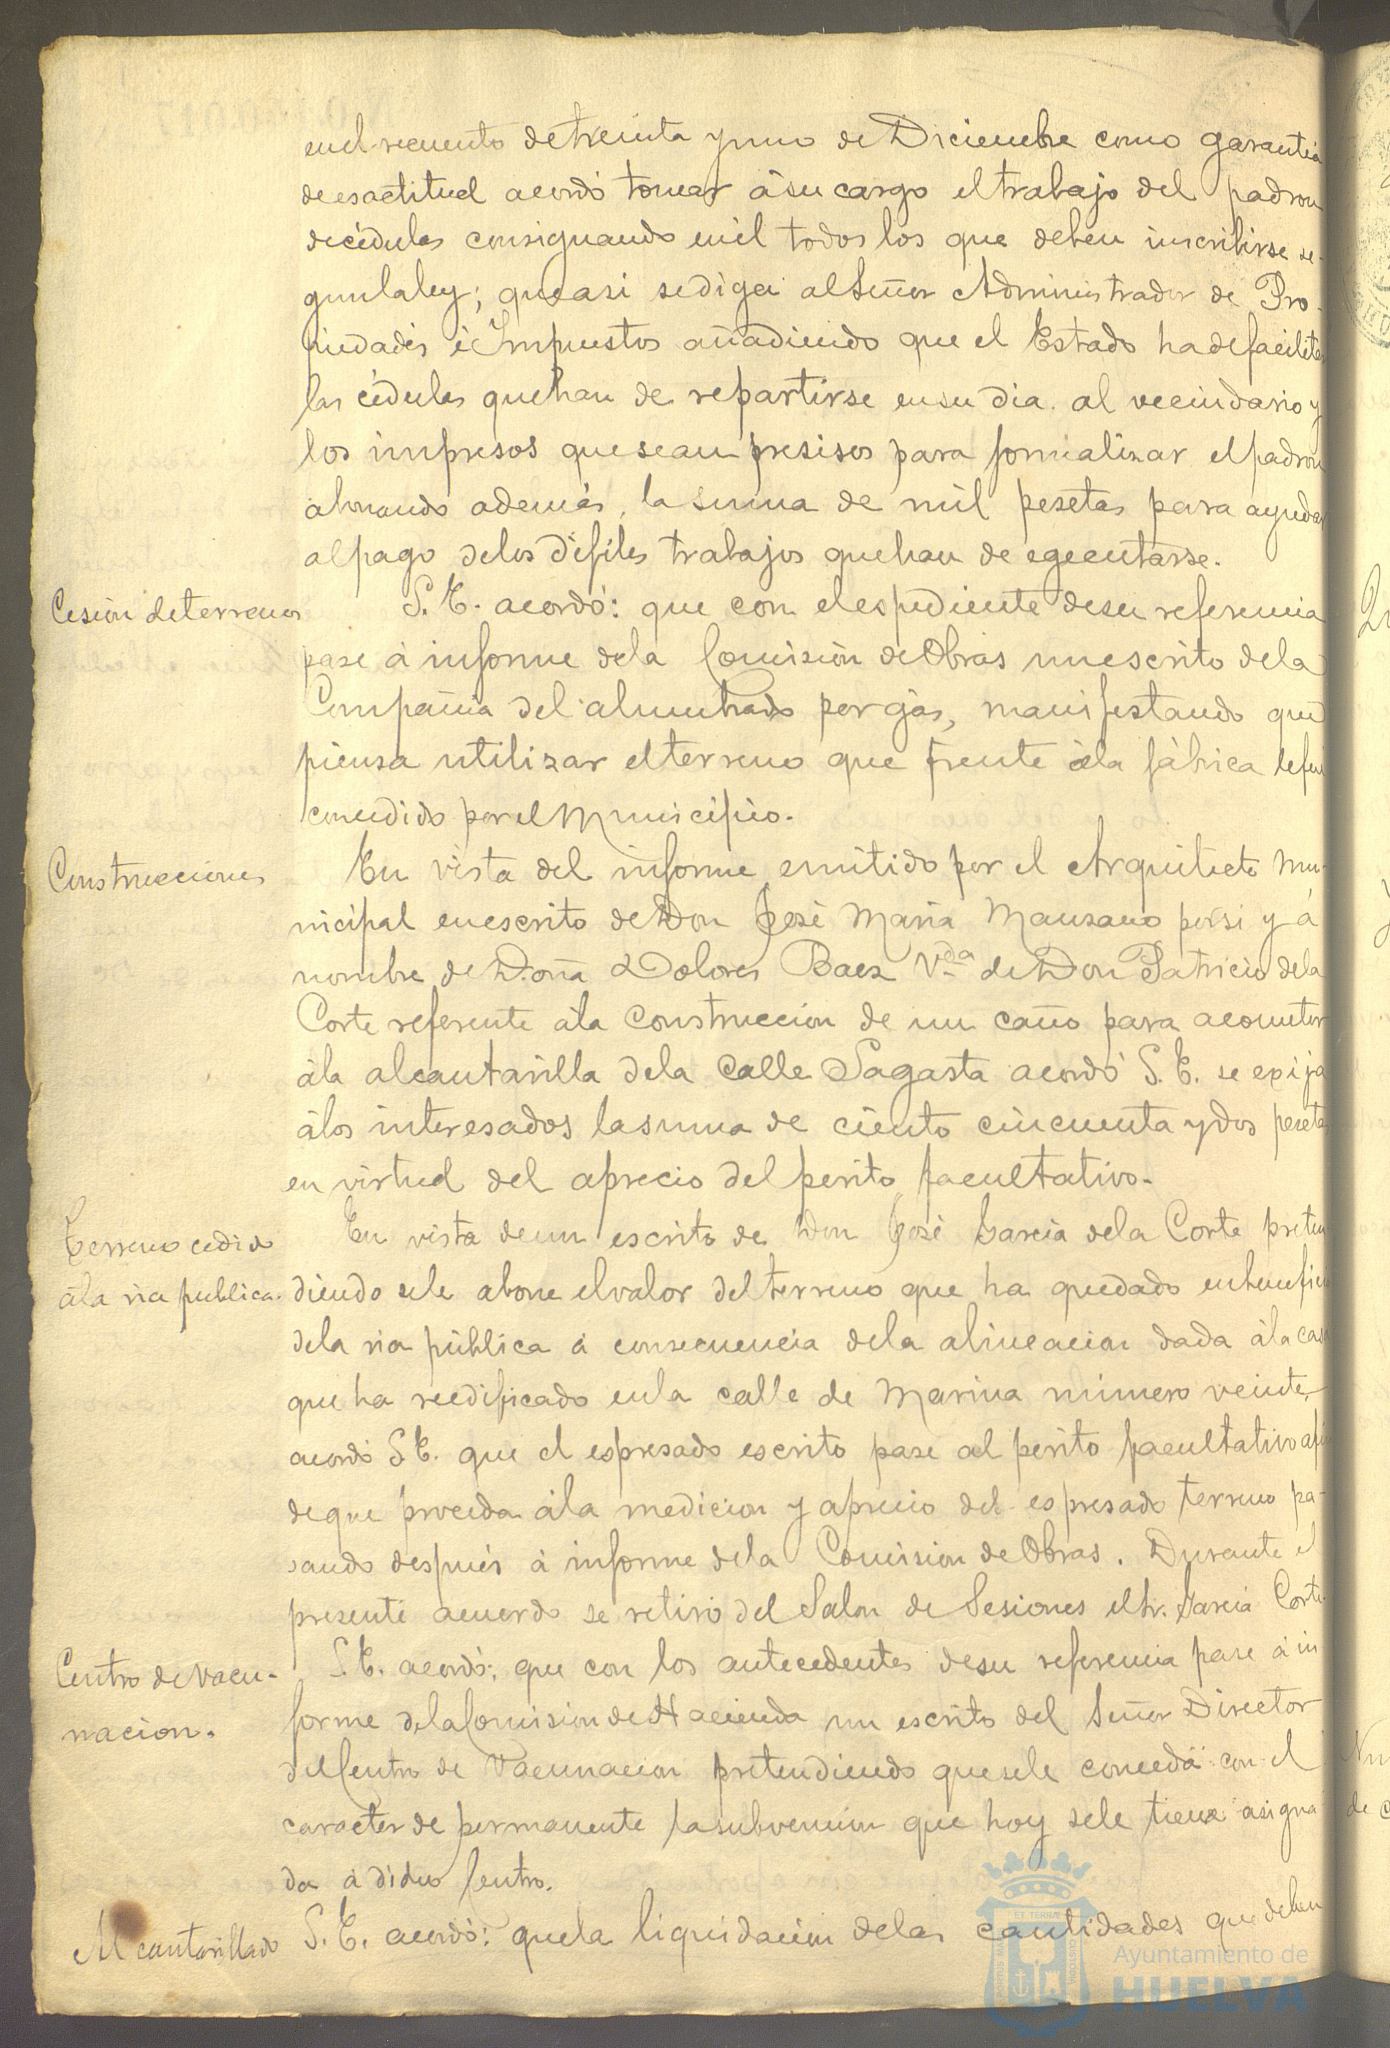 en el recuento de treinta y uno de Diciembre como garantia
de esactitud acordó tomar á su cargo el trabajo del padron
de cédulas consignando en él todos los que deben inscribirse se-
gun la ley; que asi se diga al Señor Administrador de Pro-
piedades é Impuestos añadiendo que el Estado ha de facilitar
las cédulas que han de repartirse en su dia al vecindario y
los impresos que sean presisos para formalizar el padron
abonando además, la suma de mil pesetas para ayudar
al pago de los dificiles trabajos que han de egecutarse.
Cesión de terrenos
S. E. acordó: que con el espediente de su referencia
pase á informe de la Comisión de Obras un escrito de la
Compañia del alumbrado por gás, manifestando que
piensa utilizar el terreno que frente á la fábrica le fué
concedido por el Municipio.
Construcciones
En vista del informe emitido por el Arquitecto Mu-
nicipal en escrito de Don José Maria Manzano por si y á
nombre de Doña Dolores Baez Vda de Don Patricio de la
Corte referente á la construccion de un caño para acometer
á la alcantarilla de la calle Sagasta acordó S. E. se exija
á los interesados la suma de ciento cincuenta y dos pesetas
en virtud del aprecio del perito facultativo.
Terreno cedido
á la via publica.
En vista de un escrito de Don José Garcia de la Corte preten
diendo se le abone el valor del terreno que ha quedado en beneficio
de la via pública á consecuencia de la alineacion dada á la casa
que ha reedificado en la calle de Marina número veinte,
acordó S. E. que el espresado escrito pase al perito facultativo a fin
de que proceda á la medicion y aprecio del espresado terreno pa-
sando después á informe de la Comision de Obras. Durante el
presente acuerdo se retiró del Salon de Sesiones el Sr. Garcia Corte.
Centro de Vacu-
nacion.
S. E. acordó: que con los antecedentes de su referencia pase á in
forme de la Comision de Hacienda un escrito del Señor Director
del Centro de Vacunacion pretendiendo que se le conceda con el
caracter de permanente la subvencion que hoy se le tiene asigna
da á dicho Centro.
Alcantarillado
S. E. acordó: que la liquidación de las cantidades que deben
Ayuntamiento de
HUELVA